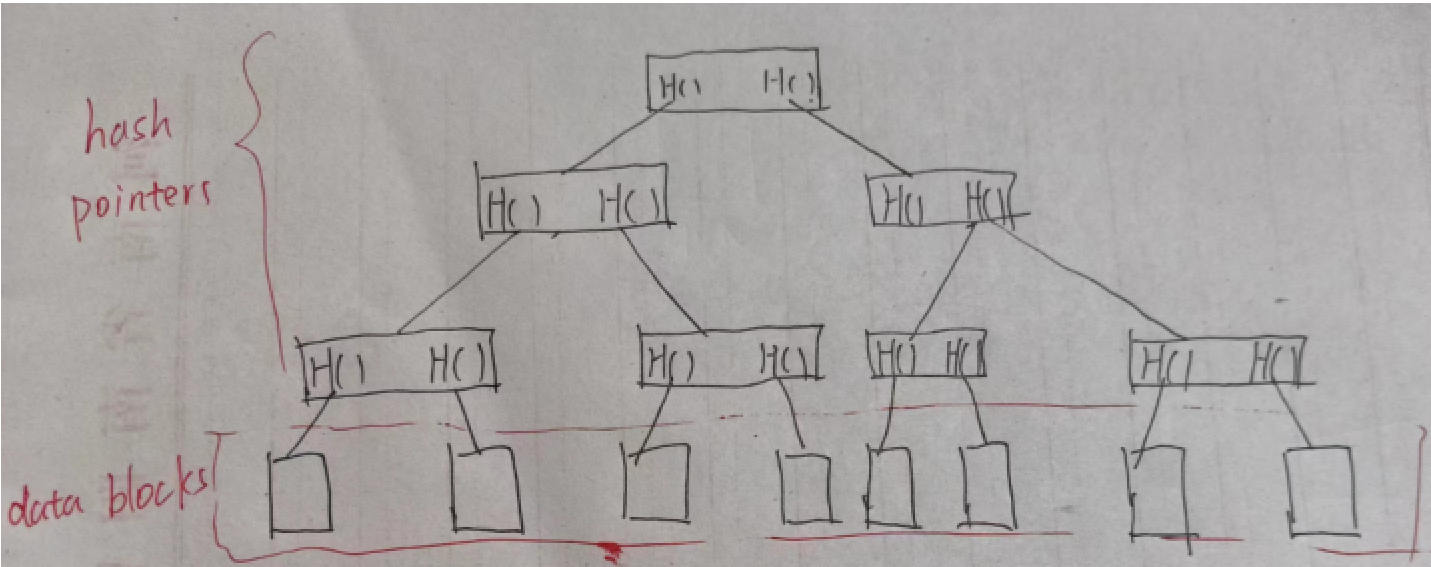 H() H()
hash
pointers
H() H() H() H()
H() H() H() H() H() H() H() H()
data blocks